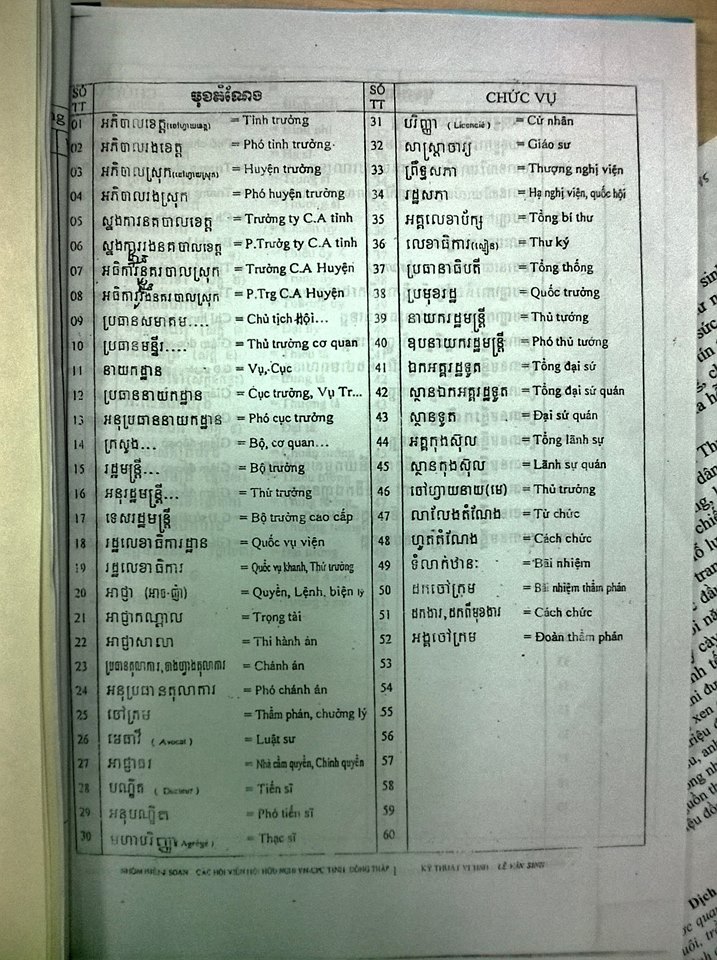 SỐ TT មុខតំណែង
01 អភិបាលខេត្ត(ចៅហ្វាយខេត្ត) = Tỉnh trưởng
02 អភិបាលរងខេត្ត = Phó tỉnh trưởng
03 អភិបាលស្រុក(ចៅហ្វាយស្រុក) = Huyện trưởng
04 អភិបាលរងស្រុក = Phó huyện trưởng
05 ស្នងការនគបាលខេត្ត = Trưởng ty C.A tỉnh
06 ស្នងការរងនគបាលខេត្ត = P.Trưởg ty C.A tỉnh
07 អធិការនគរបាលស្រុក = Trưởng C.A Huyện
08 អធិការរងនគរបាលស្រុក = P.Trg C.A Huyện
09 ប្រធានសមាគម.... = Chủ tịch Hội...
10 ប្រធានមន្ទីរ.... = Thủ trưởng cơ quan
11 នាយកដ្ឋាន = Vụ, Cục
12 ប្រធាននាយកដ្ឋាន = Cục trưởng, Vụ Tr...
13 អនុប្រធាននាយកដ្ឋាន = Phó cục trưởng
14 ក្រសួង... = Bộ, cơ quan...
15 រដ្ឋមន្ត្រី... = Bộ trưởng
16 អនុរដ្ឋមន្ត្រី... = Thứ trưởng
17 ទេសរដ្ឋមន្ត្រី = Bộ trưởng cao cấp
18 រដ្ឋលេខាធិការដ្ឋាន = Quốc vụ viện
19 រដ្ឋលេខាធិការ = Quốc vụ khanh, Thứ trưởng
20 អាជ្ញា (អាច-ញ៉ា) = Quyền, Lệnh, biện lý
21 អាជ្ញាកណ្តាល = Trọng tài
22 អាជ្ញាសាលា = Thi hành án
23 ប្រធានតុលាការ, = Chánh án
24 អនុប្រធានតុលាការ = Phó chánh án
25 ចៅក្រម = Thẩm phán, chưởng lý
26 មេធាវី ( Avocat ) = Luật sư
27 អាជ្ញាធរ = Nhà cầm quyền, Chính quyền
28 បណ្ឌិត ( Docteur ) = Tiến sĩ
29 អនុបណ្ឌិត = Phó tiến sĩ
30 មហាបរិញ្ញា( Agrégé ) = Thạc sĩ
SỐ TT CHỨC VỤ
31 បរិញ្ញា ( Licencié ) = Cử nhân
32 សាស្ត្រាចារ្យ = Giáo sư
33 ព្រឹទ្ធសភា = Thượng nghị viện
34 រដ្ឋសភា = Hạ nghị viện, quốc hội
35 អគ្គលេខាបក្ស = Tổng bí thư
36 លេខាធិការ(សៀន) = Thư ký
37 ប្រធានាធិបតី = Tổng thống
38 ប្រមុខរដ្ឋ = Quốc trưởng
39 នាយករដ្ឋមន្ត្រី = Thủ tướng
40 ឧបនាយករដ្ឋមន្ត្រី = Phó thủ tướng
41 ឯកអគ្គរដ្ឋទូត = Tổng đại sứ
42 ស្ថានឯកអគ្គរដ្ឋទូត = Tổng đại sứ quán
43 ស្ថានទូត = Đại sứ quán
44 អគ្គកុងស៊ុល = Tổng lãnh sự
45 ស្ថានកុងស៊ុល = Lãnh sự quán
46 ចៅហ្វាយនាយ(មេ) = Thủ trưởng
47 លាលែងតំណែង = Từ chức
48 ហូតតំណែង = Cách chức
49 ទំលាក់ឋានៈ = Bãi nhiệm
50 ដកចៅក្រម = Bãi nhiệm thẩm phán
51 ដកងារ,ដកពីមុខងារ = Cách chức
52 អង្គចៅក្រម = Đoàn thẩm phán
53
54
55
56
57
58
59
60
NHÓM BIÊN SOẠN CÁC HỘI VIÊN HỘI HỮU NGHỊ VN-CPC TỈNH ĐỒNG THÁP KỸ THUẬT VI TÍNH LÊ VĂN SINH